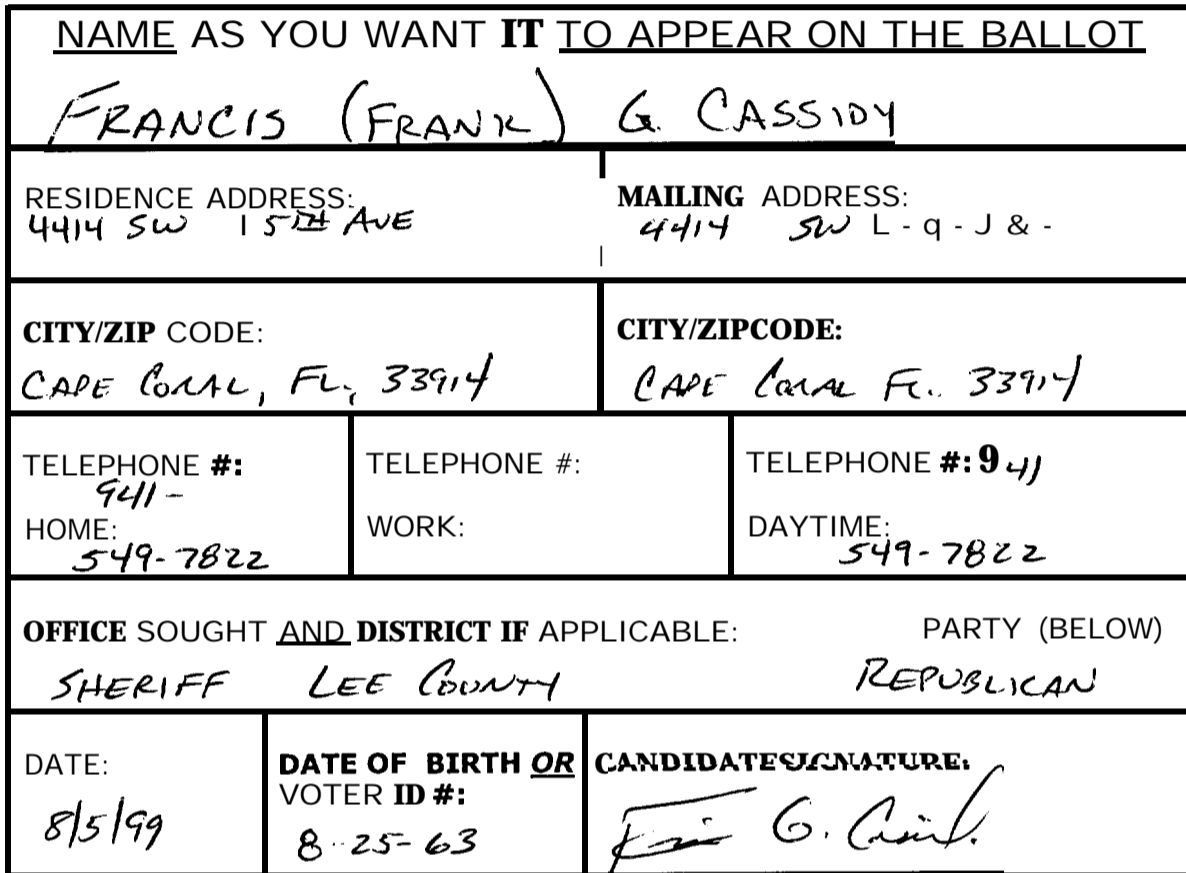 NAME AS YOU WANT IT TO APPEAR ON THE BALLOT
FRANCIS (FRANK) G. CASSIDY
RESIDENCE ADDRESS:
4414 SW 15TH AVE
MAILING ADDRESS:
4414 SW L - q - J & -
CITY/ZIP CODE:
CAPE CORAL, FL, 33914
CITY/ZIPCODE:
CAPE CORAL FL. 33914
TELEPHONE #:
941-
HOME:
549-7822
TELEPHONE #:
WORK:
TELEPHONE #: 941
DAYTIME:
549-7822
OFFICE SOUGHT AND DISTRICT IF APPLICABLE:
PARTY (BELOW)
SHERIFF LEE COUNTY
REPUBLICAN
DATE:
8/5/99
DATE OF BIRTH OR
VOTER ID #:
8-25-63
CANDIDATESIGNATURE:
G.